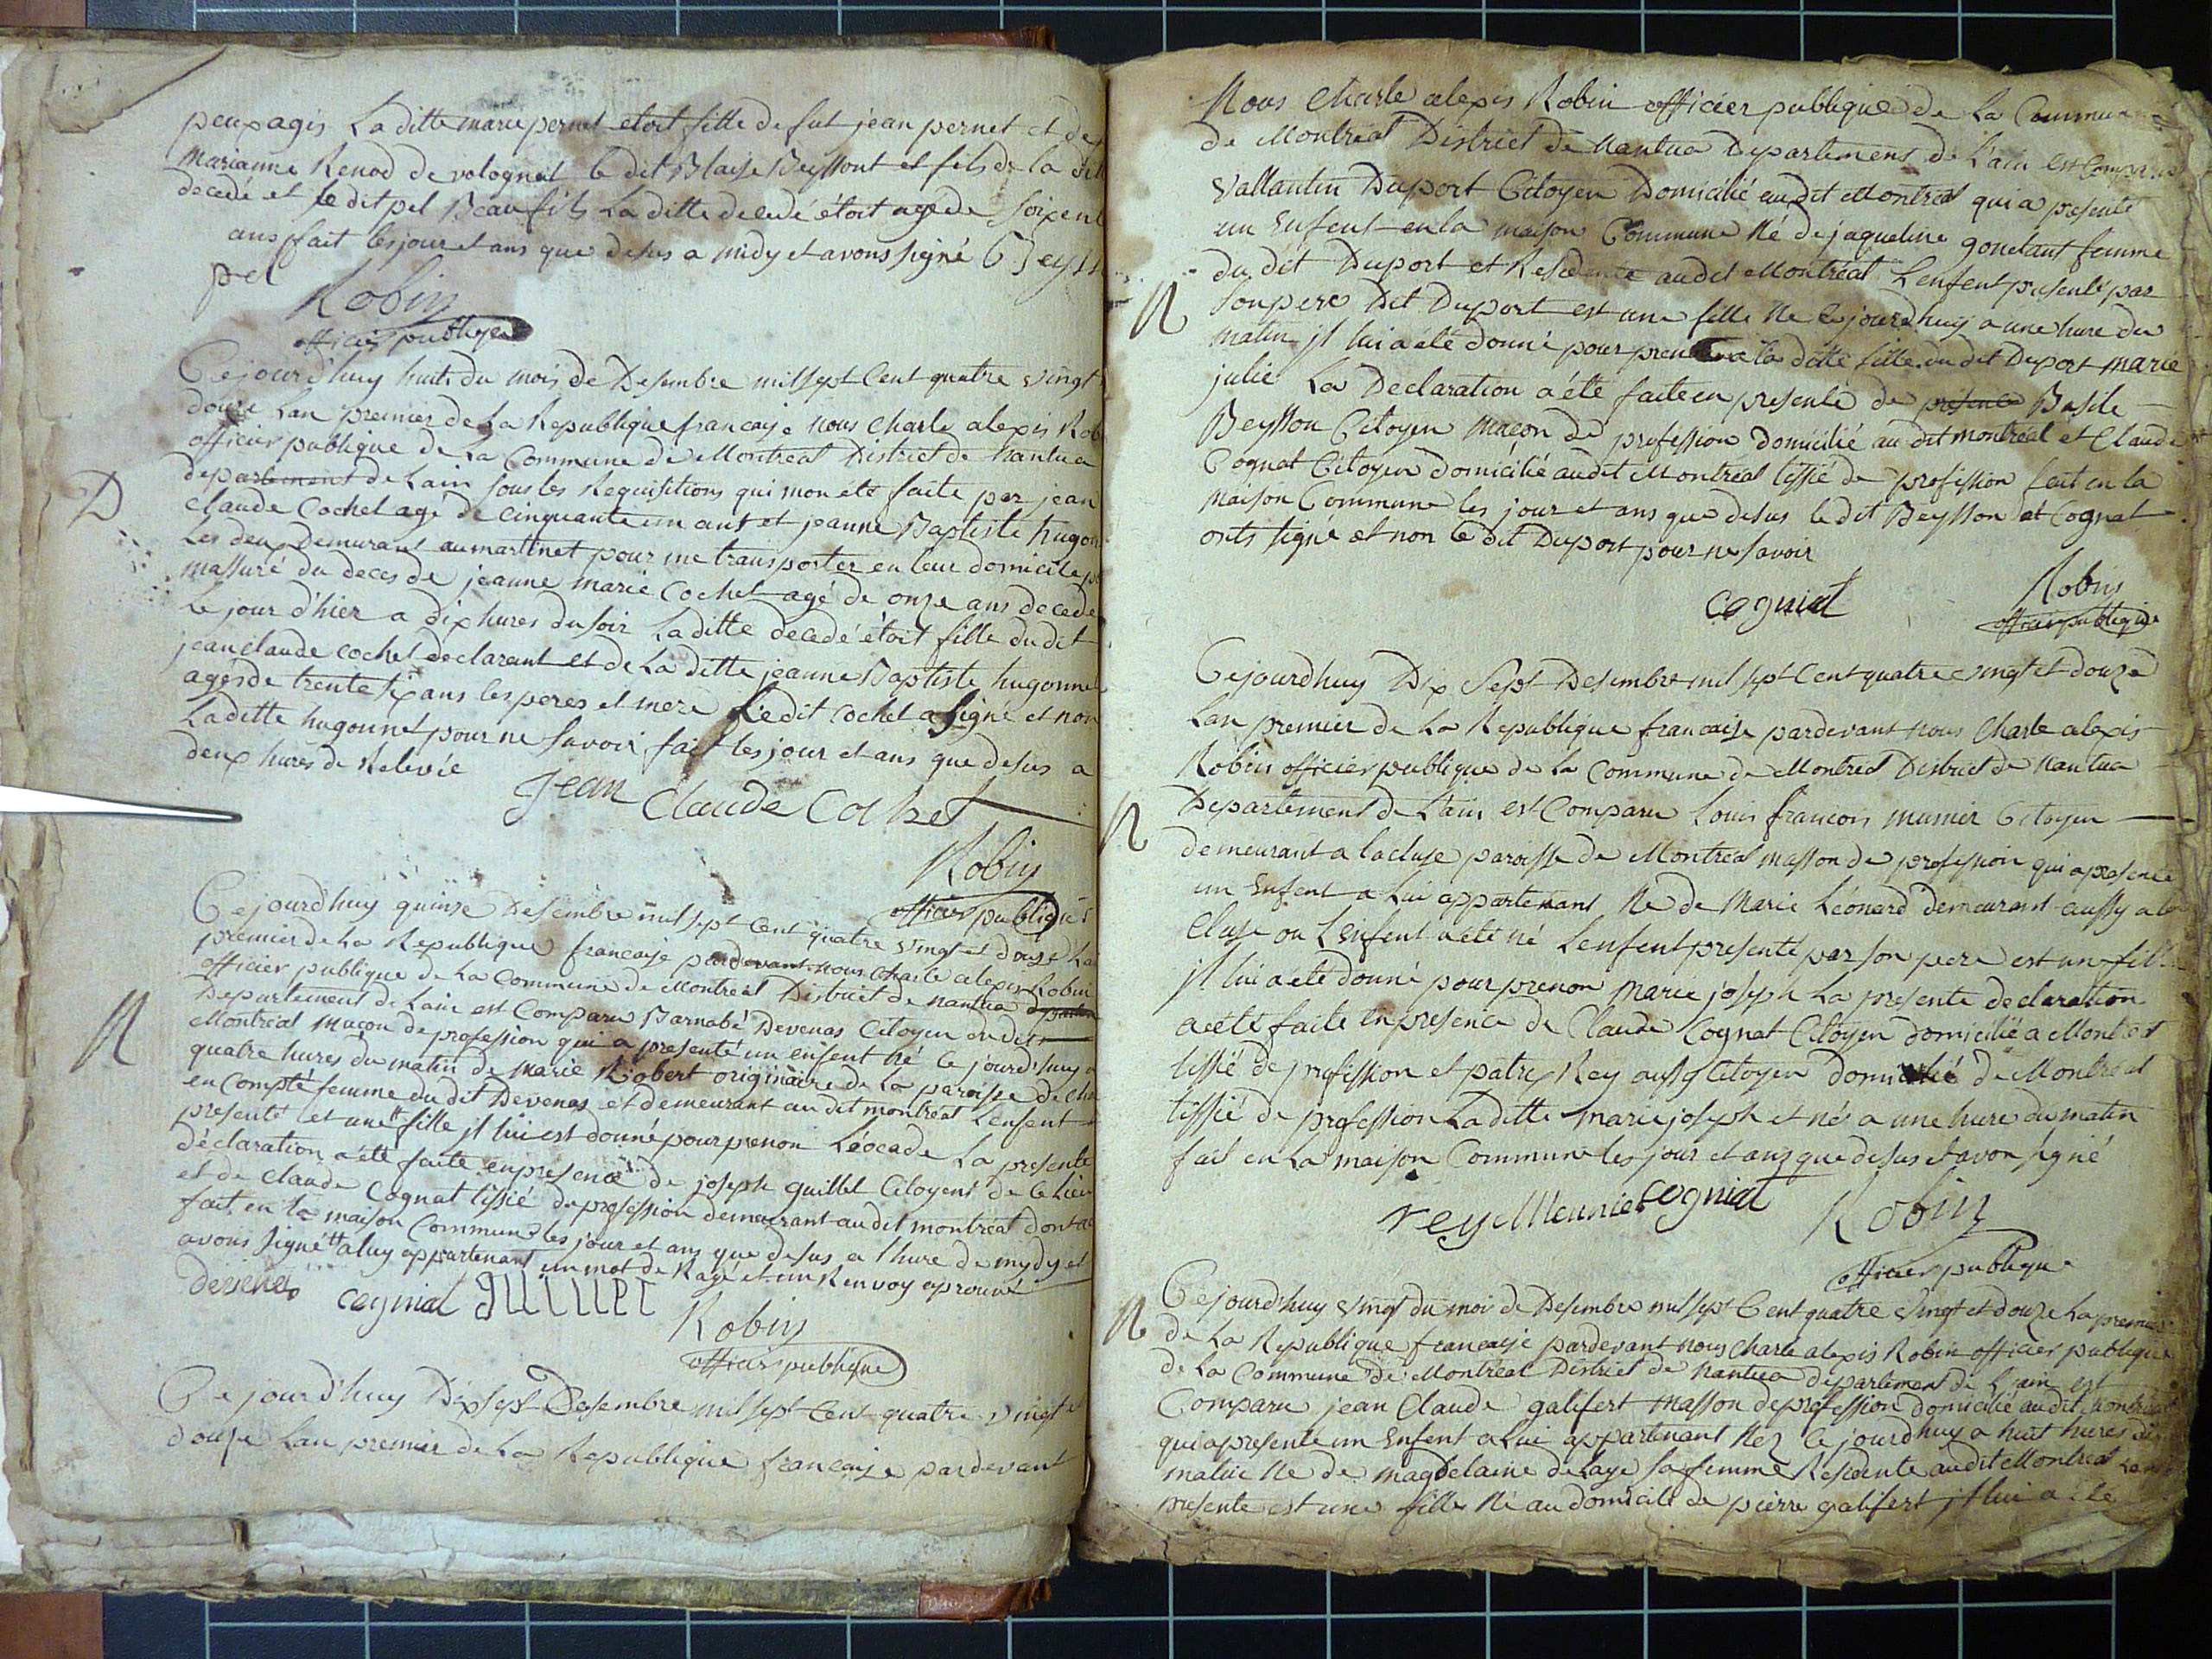 peupagis La ditte marie pernet etoit fille de fut jean pernet et de
Marianne Renod de volognat le dit Blaise Beyssont et fils de la dit
decedé et le dit pel Beaufils La ditte decedé étoit agé de soixent
ans fait les jour et ans que desus a midy et avons signé Beyss
pel
Robin
officier publique
Cejourd'huy huit du mois de Desembre mil sept Cent quatre vingt
douze Lan premier de La Republique francaise nous charle alexis Rob
officier publique de La Commune de Montreal District de nantua
D
departement de Lain sous les Requisitions qui mon été faite par jean
Claude Cochet agé de cinquante un ant et jeanne Baptiste hugon
Les deux Demurant au martinet pour me transporter en leur domicile p
massuré du deces de jeanne marie Cochet agé de onze ans decedé
Le jour d'hier a dix hures du soir La ditte decedé étoit fille du dit
jean claude cochet declarant et de La ditte jeanne Baptiste hugonnet
agés de trente six ans les peres et mere Ledit Cochet a signé et non
La ditte hugonnet pour ne savoir fait les jour et ans que desus a
deux hures de Relevée
Jean Claude Cochet
Robin
officier publique
Cejourd'huy quinse Desembre mil sept Cent quatre vingt et douze La
premier de La Republique francaise pardevant nous Charle alexis Robin
officier publique de La Commune de Montreal District de nantua
N
Departement de Lain est Comparu Barnabé Devenas Citoyen dudit
Montreal Maçon de profession qui a presenté un enfent né ce jourd'huy a
quatre hures du matin de Marie Robert originaire de La paroisse de
en Compté femme du dit Devenas et demeurant au dit montreal Lenfent
presenté et une tt fille jl lui est donné pour prenon Léocade La presente
déclaration a été faite en presence de joseph guillet Citoyent de ce Lieu
et de Claude Cognat tissié de profession demeurant au dit montreal dont ac
fait en la maison Commune les jour et ans que desus a l'hure de mydy et
avons signé tt a luy appartenant un mot de Rayé et un Renvoy aprouvé
devenas cogniat guillet
Robin
officier publique
Cejourd'huy Dix sept Desembre mil sept Cent quatre vingt et
douze Lan premier de La Republique francaise pardevant
Nous Charle alexis Robin officier publique de La Commune
de Montreal District de Nantua Departement de L'ain est Comparu
vallantin Duport Citoyen Domicilié au dit Montreal qui a presenté
un Enfent en la maison Commune Né de jaqueline gonetant femme
du dit Duport et Residente au dit Montreal Lenfent presenté par
N
son pere Dit Duport est une fille Né le jourd'huy a une hure du
matin jl lui a été donné pour prenon a la ditte fille du dit Duport marie
julie La Declaration a été faite en presente de presence Basile
Beysson Citoyen Macon de profession domicilié au dit montréal et Claude
Cognat Citoyen domicilié au dit Montreal tissié de profession fait en la
maison Commune les jour et ans que desus le dit Beysson et Cognat
onts signé et non le dit Duport pour ne savoir
cogniat
Robin
officier publique
Cejourd'huy Dix Sept Desembre mil sept Cent quatre vingt et douze
Lan premier de La Republique francaise pardevant nous Charle alexis
Robin officier publique de La Commune de Montreal District de Nantua
N
Departement de Lain est Comparu Louis francois munier Citoyen
demeurant a lacluse paroisse de Montreal masson de profession qui a presenté
un Enfent a Lui appartenant Né de Marie Léonard demeurant aussy a la
Cluse ou L'enfent a été né Lenfent presenté par son pere est une fille
jl lui a été donné pour prenon Marie joseph La presente declaration
a été faite en presence de Claude Cognat Citoyen domicilié a Montreal
tissié de profession et patrix Rey aussy Citoyen domicilié de Montreal
tissié de profession La ditte Marie joseph et né a une hure du matin
fait en La maison Commune les jour et ans que desus et avon signé
rey Meunier cogniat Robin
officier publique
N
Cejourd'huy vingt du mois de Desembre mil sept Cent quatre vingt et douze La premier
de La Republique francaise pardevant nous Charle alexis Robin officier publique
de La Commune de Montreal District de nantua departement de L'ain est
Comparu jean Claude galifert masson de profession domicilié au dit montreal
qui a presenté un Enfent a Lui appartenant Néz le jourd'huy a huit hures du
matin Né de magdelaine de Laye sa femme Residente au dit Montreal
presenté est une fille Né au domicile de pierre galifert jl lui a été